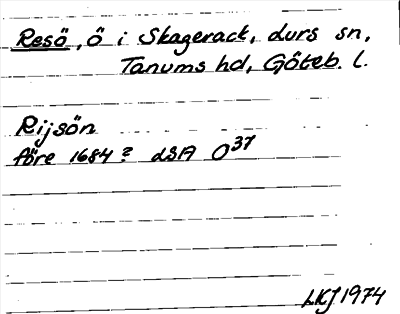 Resö, ö i Skagerack, Lurs sn,
Tanums hd, Göteb. l.
Rijsön
före 1684? LSA O37
LKJ 1974